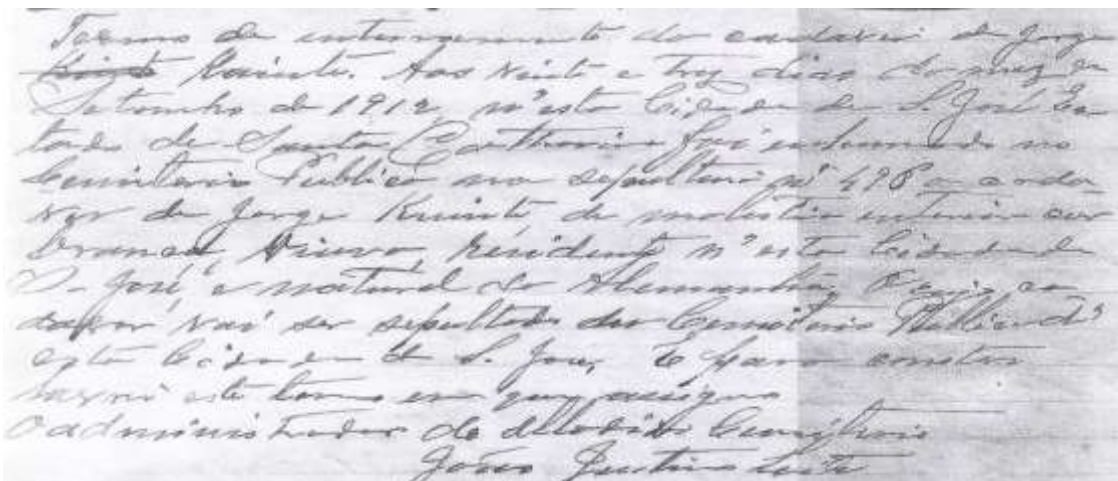 Termo de enterramento do cadaver de Jorge
Kuintè. Aos vinte e trez dias do mez de
Setembro de 1912, n'esta Cidade de S. José Es
tado de Santa Catharina foi inhumado no
Cemiterio Publico na sepultura nº 496 o cada
ver de Jorge Kuintè de molestia interior cor
branca, Viuvo, residente n'esta Cidade de
S. José, e natural da Alemanha, cujo ca
daver vai ser sepultado no Cemiterio Publico d'
esta Cidade de S. José, E para constar
lavrei este termo em que assigno
O administrador do Cemiterio
João